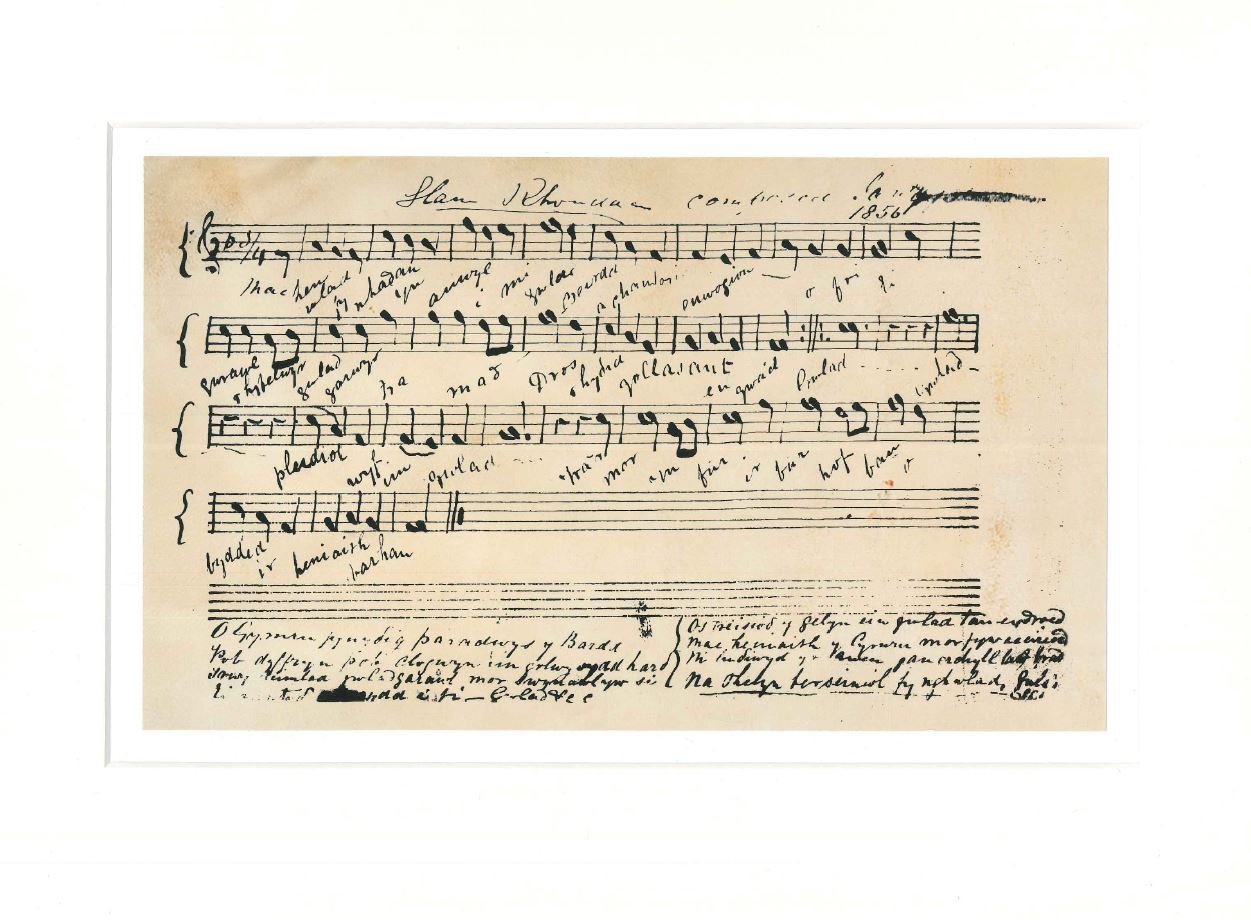 Glan Rhondda composed Jan ry
1856
Mae hen wlad fy nhadau yn anwyl i mi gwlad Beirdd a chantorion enwogion o fri Ei
gwrawl ryfelwyr gwlad garwyr tra mad Dros rhydid gollasant eu gwaed Gwlad Gwlad
pleidiol wyf im gwlad tra mor yn fur ir bur hof bau o
bydded ir heniaith barhau
O Gymru fynydig paradwys y Bardd
Pob dyffryn pob clogwyn im golwg sydd hardd
trwy teimlad gwladgarawl mor swynawl yw si
Ei i ti Gwlad &c
Os treisiod y gelyn ein gwlad tan ei droed
mae heniaith y Cymru mor fyw ac erioed
Ni ludiwyd yr awen gan erchyll law brad
Na thelyn berseiniol fy ngwlad, Gwlad
&c